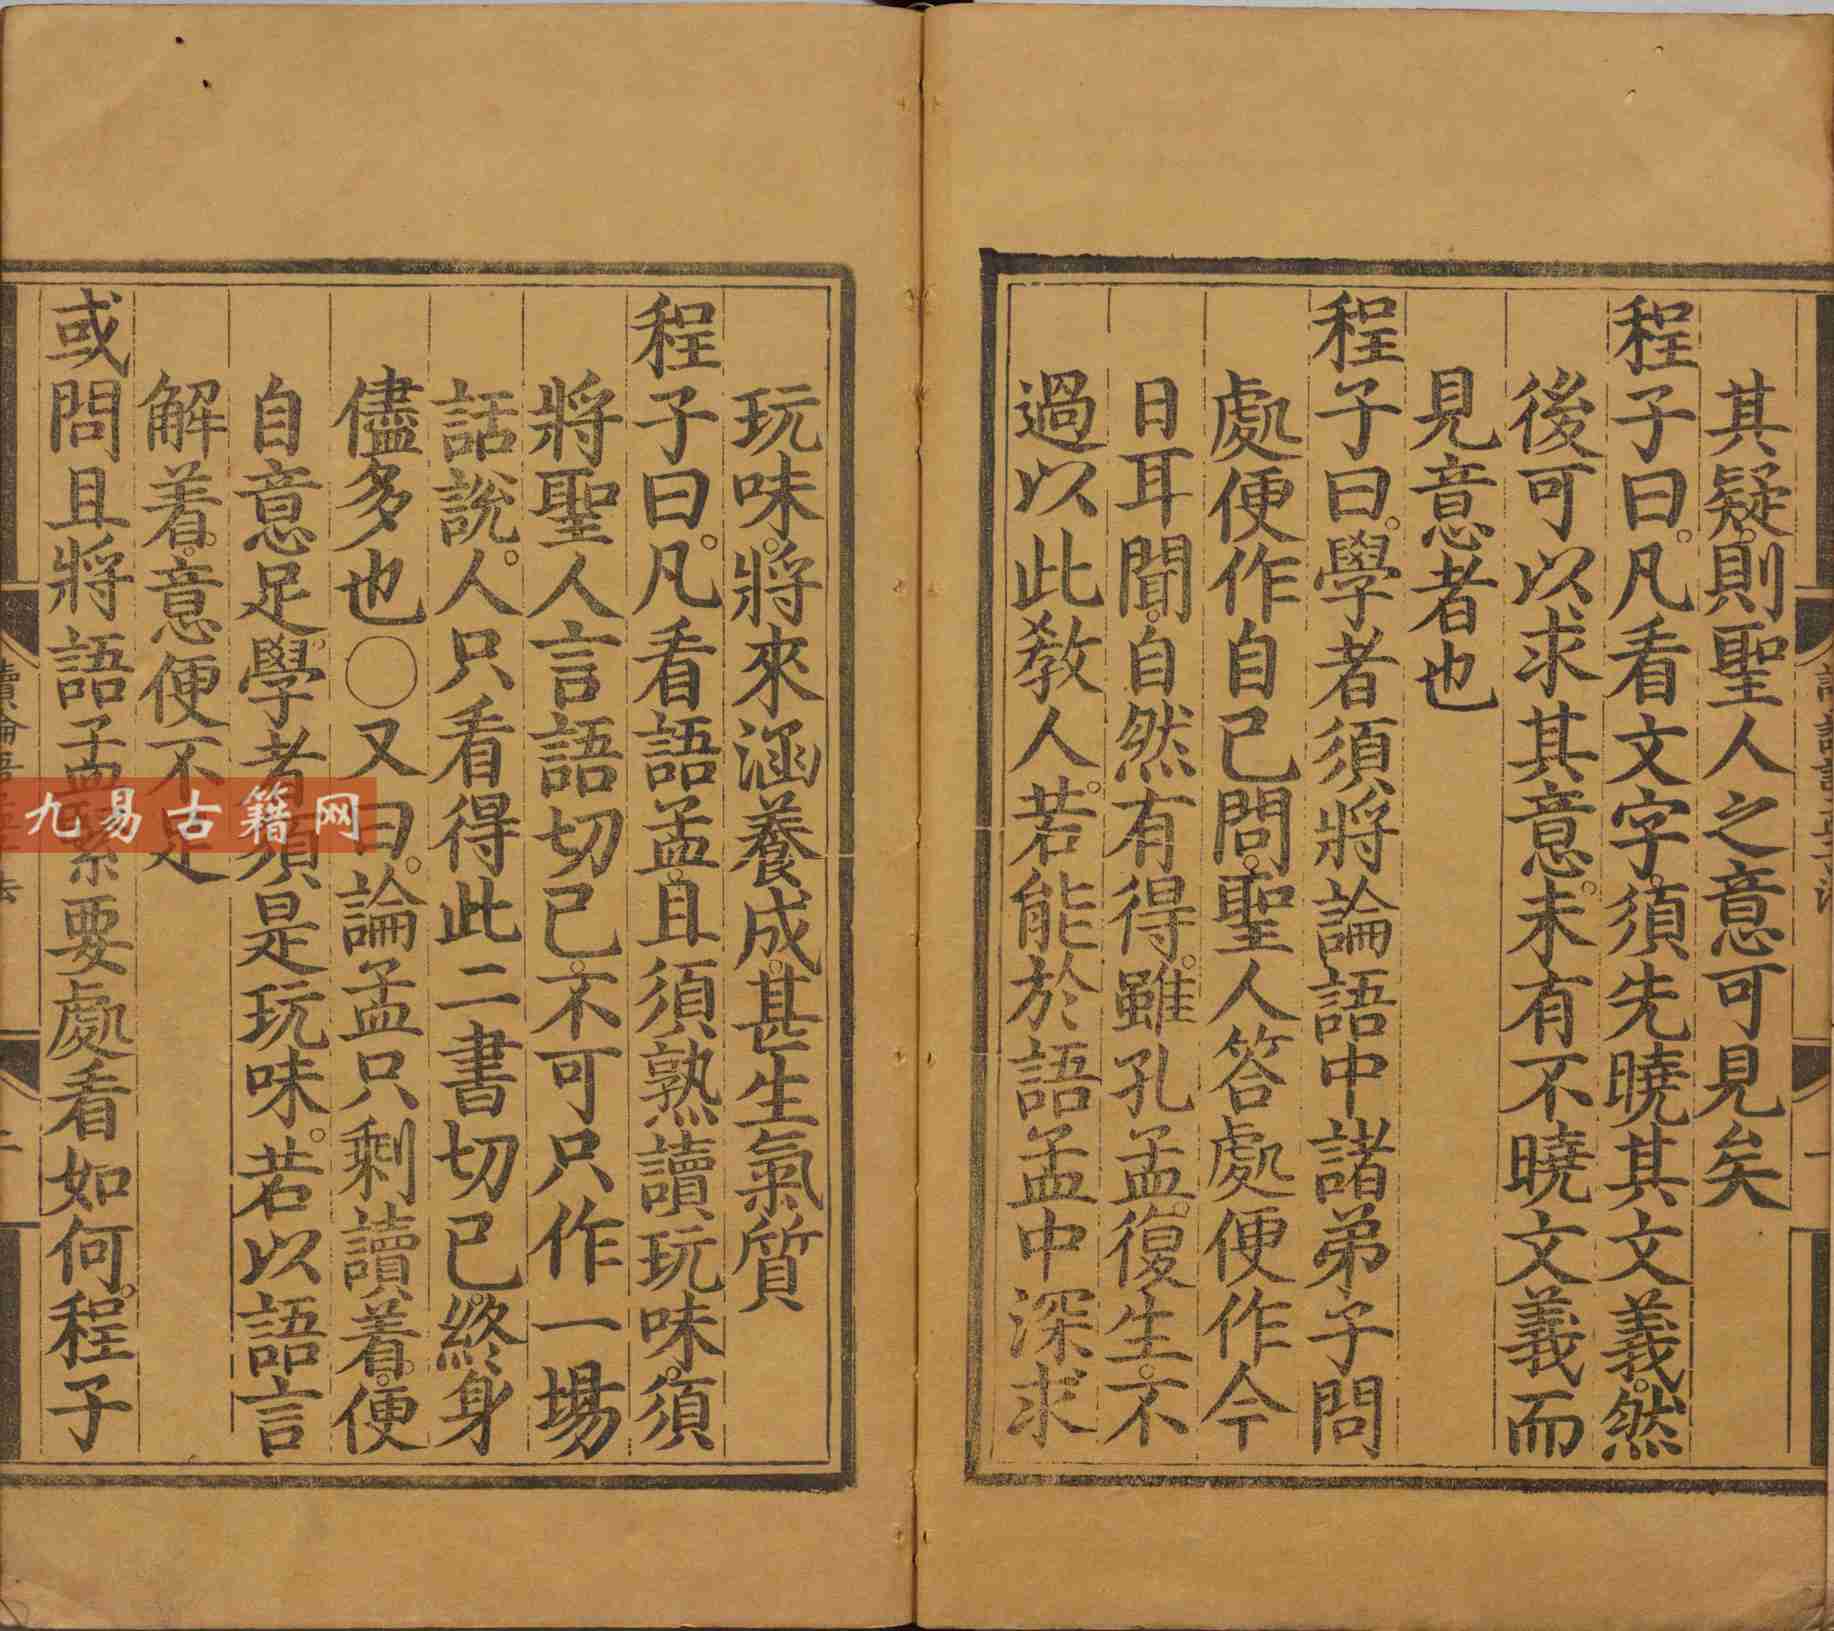 其疑則聖人之意可見矣
程子曰。凡看文字。須先曉其文義。然
後可以求其意。未有不曉文義而
見意者也
程子曰。學者須將論語中諸弟子問
處便作自己問。聖人答處便作今
日耳聞。自然有得。雖孔孟復生。不
過以此教人。若能於語孟中深求
玩味。將來涵養成甚生氣質
程子曰。凡看語孟。且須熟讀玩味。須
將聖人言語切己。不可只作一場
話說。人只看得此二書切己。終身
儘多也〇又曰。論孟只剩讀着。便
自意足。學者須是玩味。若以語言
解着。意便不足
或問且將語孟緊要處看如何。程子
九易古籍网